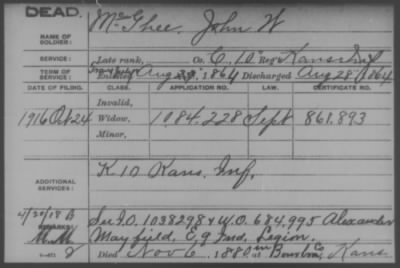 DEAD.
NAME OF SOLDIER: McGhee, John W
SERVICE: Late rank, Co. C, 10" Reg't Kans Inf
TERM OF SERVICE: Enlisted Aug , 1861 Discharged Aug 28, 1864
DATE OF FILING. CLASS. APPLICATION NO. LAW. CERTIFICATE NO.
Invalid,
1916 Oct 24 Widow, 1084.228 Sept 861.893
Minor,
ADDITIONAL SERVICES: K 10 Kans. Inf.
4/20/18 B
REMARKS: See I.O. 1038298 & W.O. 684,995 Alexander
Mayfield, E, 9 Ind. Legion.
Died Nov 6, 1880 in Bourbon Co Kans.